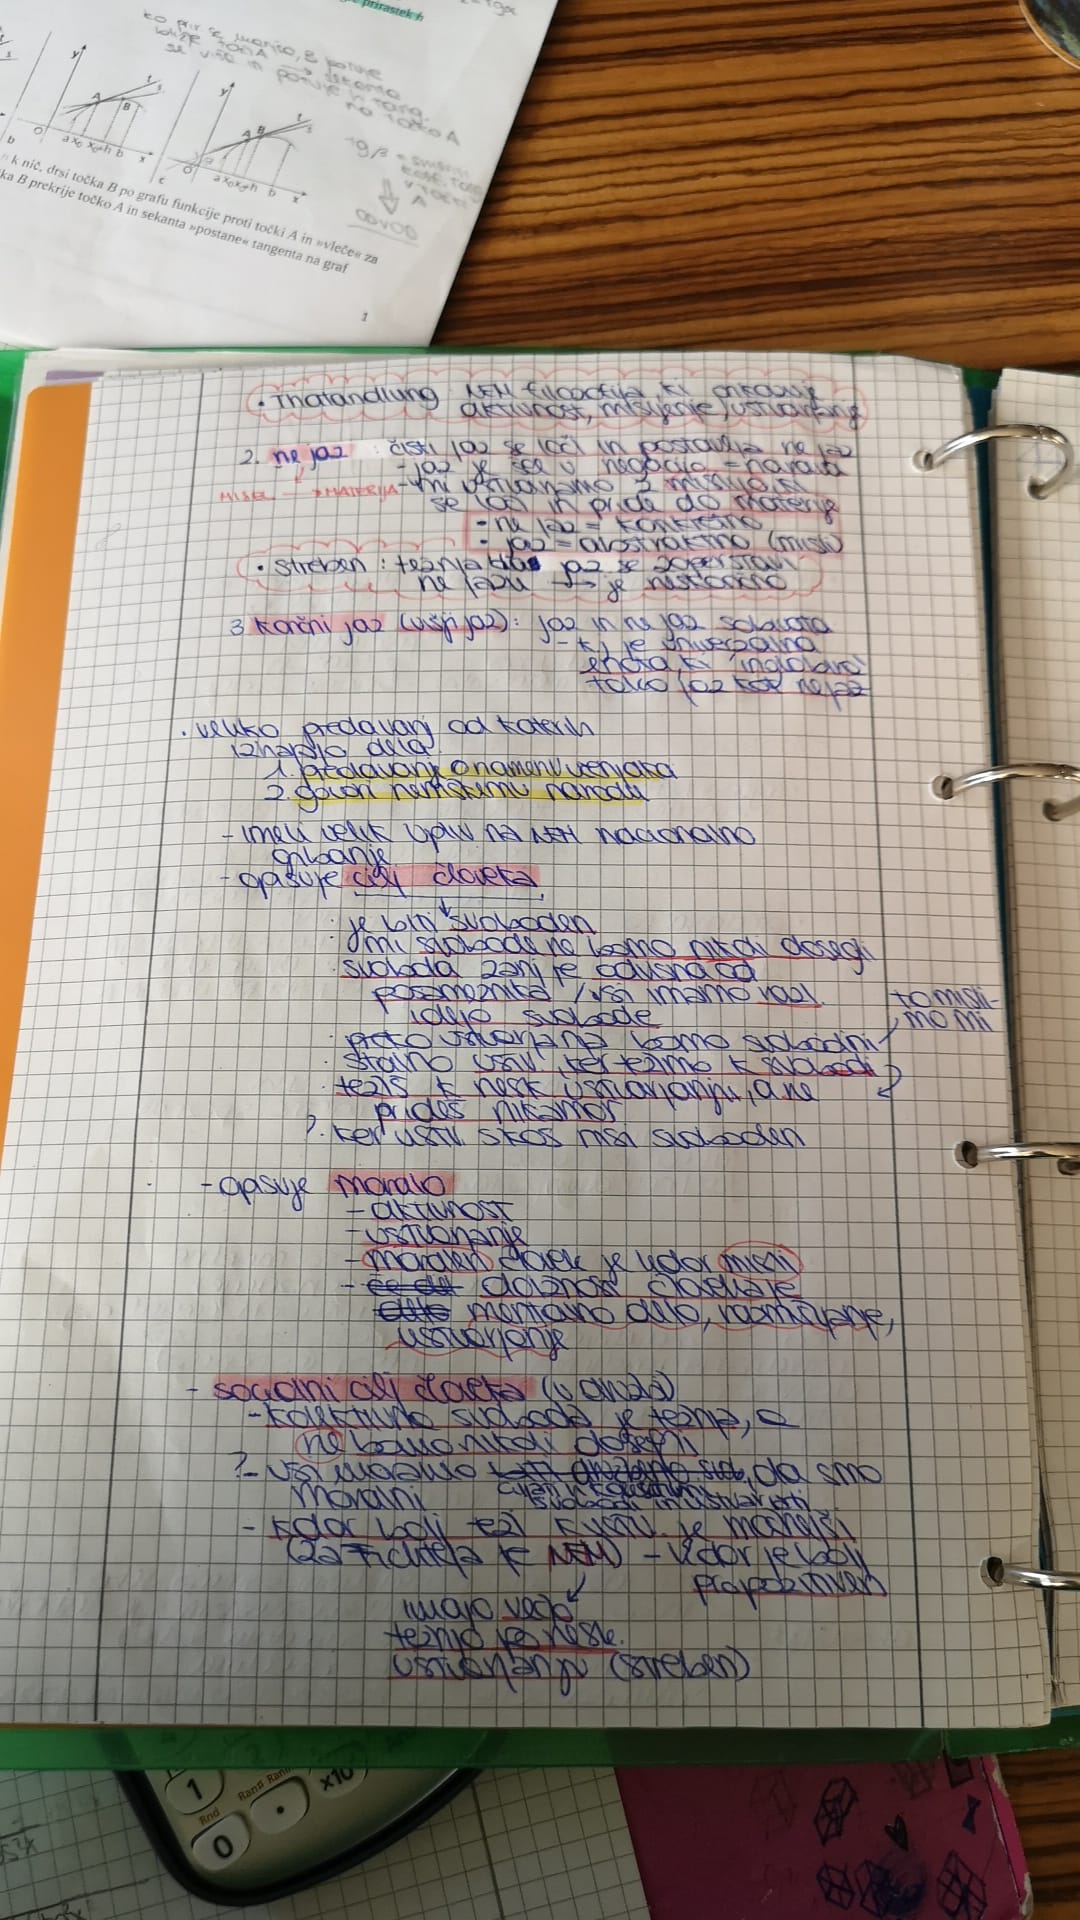 prirastek h
ko prir. se manjša, B potuje
k nič, drsi točka B po grafu funkcije proti točki A in »vleče« za
ka B prekrije točko A in sekanta »postane« tangenta na graf
1
tg β =
v točki
A
ODVOD
• Thatandlung: NEM filozofija, ki prikazuje
aktivnost, mišljenje, ustvarjanje
2. ne jaz : čisti jaz se loči in postavlja ne jaz
- jaz je še v negacijo = narava
MISEL → MATERIJA - mi ustvarjamo z mislijo ki
se loči in pride do materije
- ne jaz = konkretno
- jaz = abstraktno (misli)
• streben : težnja da jaz se zoperstavi
ne jazu → je neskončno
3. končni jaz (višji jaz): jaz in ne jaz sobivata
- k.j. je univerzalna
enota, ki
tako jaz kot ne jaz
• veliko predavanj od katerih
izhajajo dela
1. predavanje o namenu učenjaka
2. govori nemškemu narodu
- imeli velik vpliv na NEM nacionalno
gibanje
- opisuje cilj človeka
: je biti svoboden
: mi svobode ne bomo nikdi dosegli
svoboda zanj je odvisna od
posameznika / vsi imamo razl.
idejo svobode
to misli-
mo mi
: preko ustvarjanja bomo svobodni
: stalno ustv., ker težimo k svobodi
: težiš k nesk. ustvarjanju, a ne
prideš nikamor
? ker ustv. skos nisi svoboden
- opisuje moralo
- aktivnost
- ustvarjanje
- moralen človek je kdor misli
- dolžnost človeka je
mentalno delo, razmišljanje,
ustvarjanje
- socialni cilj človeka (v družbi)
- kolektivna svoboda je težnja, a
ne bomo nikdi dosegli
?- vsi moramo da smo
moralni
- kdor bolj teži k ustv. je močnejši
(za Fichteja je NEM) - kdor je bolj
imajo večjo
težnjo po nesk.
ustvarjanju (streben)
1
0
Rnd
Ran#